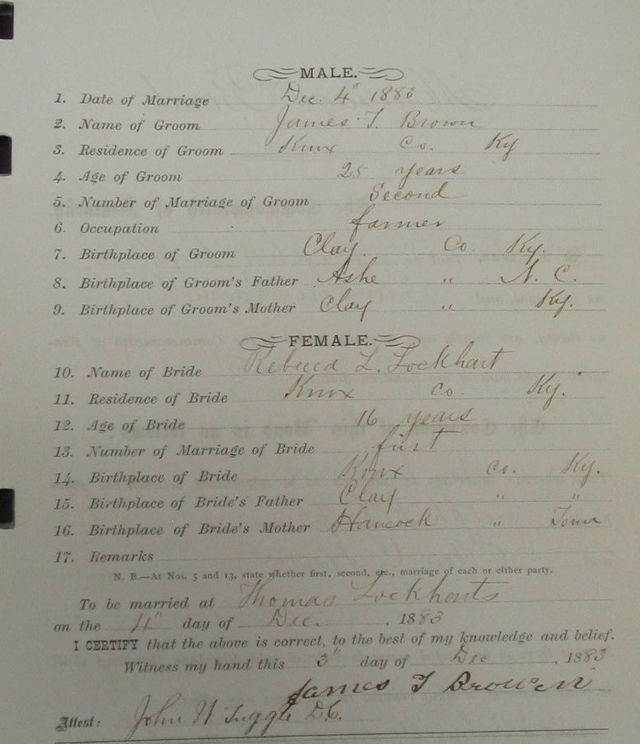 MALE.
1. Date of Marriage Dec. 4" 1883
2. Name of Groom James T. Brown
3. Residence of Groom Knox Co. Ky
4. Age of Groom 25 years
5. Number of Marriage of Groom Second
6. Occupation farmer
7. Birthplace of Groom Clay Co. Ky.
8. Birthplace of Groom's Father Ashe " N. C.
9. Birthplace of Groom's Mother Clay " Ky.
FEMALE.
10. Name of Bride Rebecca L. Lockhart
11. Residence of Bride Knox Co. Ky.
12. Age of Bride 16 years
13. Number of Marriage of Bride first
14. Birthplace of Bride Knox Co. Ky.
15. Birthplace of Bride's Father Clay " "
16. Birthplace of Bride's Mother Hancock " Tenn
17. Remarks
N. B.—At Nos. 5 and 13, state whether first, second, etc., marriage of each or either party.
To be married at Thomas Lockharts
on the 4" day of Dec. , 1883
I CERTIFY that the above is correct, to the best of my knowledge and belief.
Witness my hand this 3" day of Dec , 1883
James T Brown
Attest: John W Tuggle D.C.